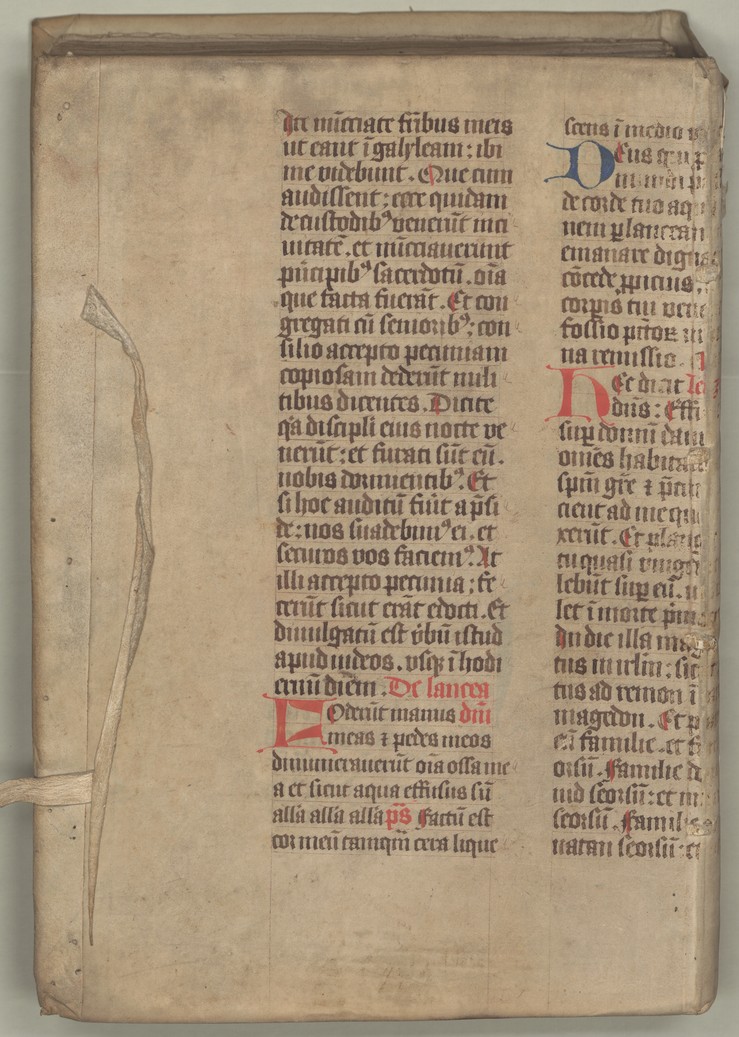 Ite nūcciate fr̄ibus meis
ut eant ī galyleam : ibi
me videbunt . Que cum
audissent ; ecce quidam
de custodibꝰ venerūt in ci
uitatē . et nūcciauerunt
pn̄cipibꝰ sacerdotū . oīa
que facta fuerāt . Et con
gregati cū senioribꝰ ; con
silio accepto pecuniam
copiosam dederūt mili
tibus dicentes . Dicite
qͥa discipli eius nocte ve
nerūt : et furati sūt eū .
nobis dormientibꝰ . Et
si hoc auditū fūit a p̄si
de : nos suadebimꝰ ei . et
securos vos faciemꝰ . At
illi accepto pecunia ; fe
cerūt sicut erāt edocti . Et
diuulgatū est v̄bū istud
apud iudeos . vsqꝫ ī hodi
ernū diēm . De lancea
Foderūt manus dn̄i
meas ⁊ pedes meos
dinumerauerūt oīa ossa me
a et sicut aqua effusus sū
alla alla alla p̄s Factū est
cor meū tamqm̄ cera lique
scens ī medio
Deus qui
de corde tuo aq
nem ꝑ lancean
emanare digna
cōcede ꝓpicius .
corpis tui
fossio pctoꝝ
na remissio .
Hec dicit
dn̄s : Effū
suꝑ domū dauid
omēs habita
spm̄ gr̄e ⁊ p̄cū
cient ad me que
xerūt . Et plang
tu quasi vnigē
lebūt suꝑ eū . u
let ī morte
In die illa mag
tus in irlm̄ : sic
tus ad remon ī
magedon . Et
familie . et
orsū . Familie
uid seorsū : et
seorsū . Famil
natan seorsū : et